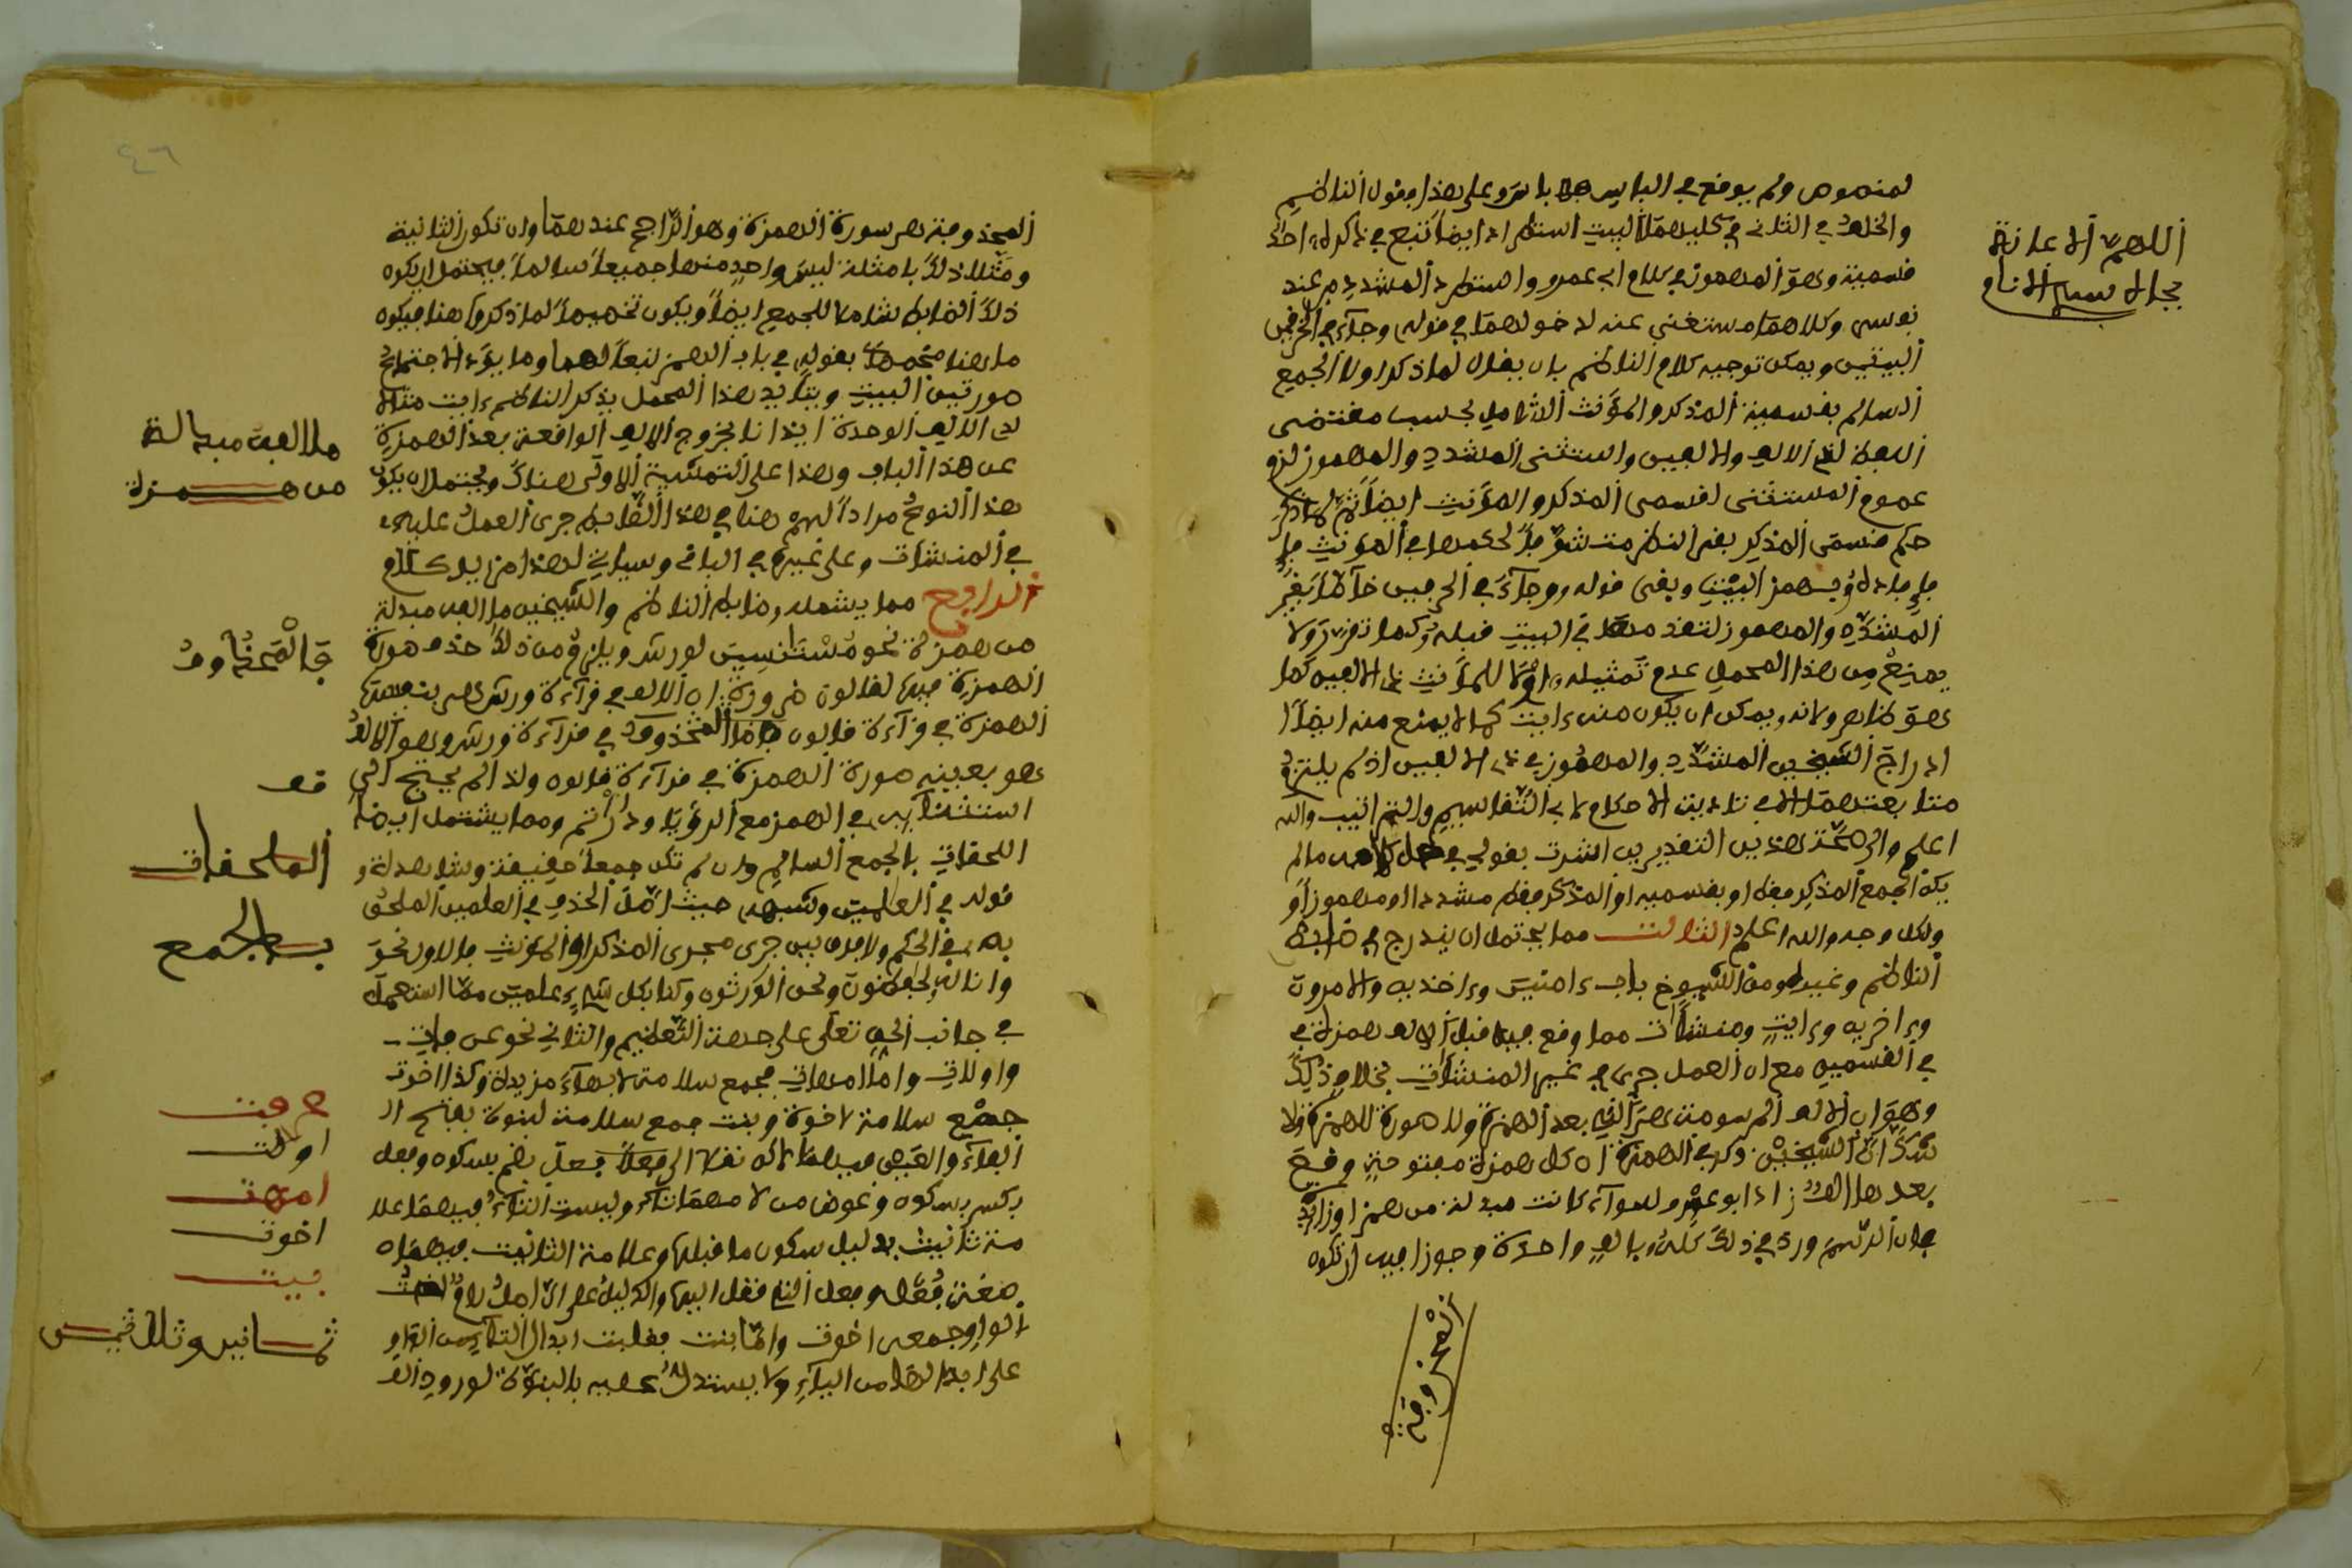 اللهم الاعانة
بجاه سيد الانام
لمنصوص ولم يوضع في البابين باس وعلى هذا وفول الناظم
والخلف في الثاني في كليهما البيت استطراد ايضا تبع في ذكره احد
فسميه وهو المهموز في كلام ابي عمرو واستطرد المشدد من عند
نوسى وكلاهما مستغنى عنه لدخولهما في فوله وجاء في الحرفين
البيتين ويمكن توجيه كلام الناظم بان يفال لما ذكر اولا الجمع
السالم بفسميه المذكر والمؤنث الشامل بحسب مفتضى
اللفظ لذي الالف والالفين واستثنى المشدد والمهموز لزم
عموم المستثنى لفسمي المذكر والمؤنث ايضا ثم لما ذكر
حكم فسمي المذكر بفي النظر متشوفا لحكمها في المؤنث
وبهمز البيت وبفى فوله وجاء في الحرفين خاصا بغير
المشدد والمهموز لتفدمهما في البيت فبله وكما تفرر ولا
يمنع من هذا المحمل عدم تمثيله اولا للمؤنث ذي الالفين كما
هو ظاهر ولانه يمكن ان يكون منه ءايت كما لا يمنع منه ايضا
ادراج الشيخين المشدد والمهموز في ذي الالفين اذ لم يلتزم
متابعتهما الا في تادية الاحكام لا في التفاسيم والتراتيب والله
اعلم والى صحة هذين التفديرين اشرت بفولي في
يكن الجمع المذكر ففط او بفسميه او المذكر ففط مشددا او مهموزا و
ولكل وجه والله اعلم الثالث مما يحتمل ان يندرج في ضابط
الناظم وغيره من الشيوخ باب ءامنين وءاخذيه والامرون
وءاخريه وءايت ومنشئات مما وفع فيه فبل الالف همزة في
في الفسمين مع ان العمل جرى في غير المنشئات بخلاف ذلك
وهو ان الالف المرسومة هي التي بعد الهمزة ولا صورة للهمزة ولا
شك ان الشيخين ذكر في الهمزة ان كل همزة مفتوحة وفع
بعدها الف زاد ابو عمرو سواء كانت مبدلة من همز او زائد
فان الرسم ورد في ذلك كله بالف واحدة وجوزا فيه ان تكون
المحذوفة
المحذوفة هي سورة الهمزة وهو الراجح عندهما وان تكون الثانية
ومثلا ذلك بامثلة ليس واحد منها جميعا سالما فيحتمل ان يكون
ذلك الضابط شاملا للجمع ايضا ويكون تخصيصا لما ذكروا هنا فيكون
ما هنا مخصصا بفوله في باب الهمز تبعا لهما وما يؤدي لاجتماع
صورتين البيت ويتايد هذا المحمل بذكر الناظم ءايت مثالا
لذي الالف الوحدة ايذانا بخروج الالف الوافعة بعد الهمزة
عن هذا الباب وهذا على التمشية الاولى هناك ويحتمل ان يكون
هذا النوع مرادا لهم هنا في هذا الضابط جرى العمل عليه
في المنشئات وعلى غيره في الباقي وسياتي لهذا مزيد كلام
الرابع مما يشمله ضابط الناظم والشيخين ما الفه مبدلة
من همزة نحو مستانسين لورش ويلزم من ذلك حذف صورة
الهمزة فيها لفالون ضرورة ان الالف في فراءة ورش هي بنفسها
الهمزة في فراءة فالون فاما المحذوف في فراءة ورش وهو الالف
هو بعينه صورة الهمزة في فراءة فالون ولذا لم يحتج الى
استثنائهن في الهمز مع الرؤيا وادارأتم ومما يشتمل ايضا
اللحفات بالجمع السالم وان لم تكن جمعا حفيفة وشاهده
فوله في العلمين وشبهه حيث اصل الحذف في العلمين الملحق
به في الحكم ولا فرق بين جرى مجرى المذكر او المؤنث فالاول نحو
وانا له لحفظون ونحن الوارثون وكنا بكل شيء علمين مما استعمل
في جانب الحق تعلى على جهة التعظيم والثاني نحو عرفات
واولات واما امهات فجمع سلامة لام بهاء مزيدة وكذا اخوت
جمع سلامة لاخوة وبنت جمع سلامة لبنوة بفتح ال
الباء والعين فيهما لاكن نفلا الى فعل بضم بسكون وفعل
بكسر بسكون وعوض من لامهما تاء وليست التاء فيهما علا
مة تانيث بدليل سكون ما فبلها وعلامة التانيث فيهما
صيغة فعل وفعل التي نفل اليها والدليل على ان اصل لام اخت
الواو جمعه اخوت واما بنت ففلبت ابدال التاء من الواو
على ابدالها من الياء ولا يستدل عليه بالبنوة لورود الف
ما الفه مبدلة
من همزة
فالمحذوف
فف
الملحفات
بالجمع
عرفت
اولت
امهت
اخوت
بنت
ثمانين وثلاثين
٤٦